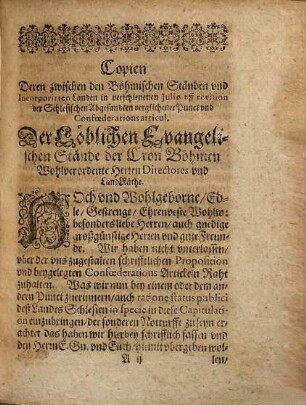 Copien
Deren zwischen den Böhmischen Ständen vnd
Incorporirten Landen in verschienenen Julio vff revision
der Schlesischen Abgesandten verglichener Punct vnd
Confœderations articul.
Der Löblichen Evangeli-
schen Stände der Cron Böhmen
Wohlverordente Herren Directores vnd
LandRäthe.
HOch vnd Wohlgeborne/ Ed-
le/ Gestrenge/ Ehrenveste Wohlw:
besonders liebe Herren/ auch gnedige
großgünstige Herren vnd gute Freun-
de. Wir haben nicht vnterlassen/
vber der vns zugestalten schrifftlichen Proposition
vnd beygelegten Confœderations Artickeln Raht
zuhalten. Was wir nun bey einem oder dem an-
dern Punct zuerinnern/ auch ratione status publici
deß Landes Schlesien in specie in diese Capitulati-
on einzubringen/ der sonderen Notturfft zu seyn er-
achtet das haben wir hierbey schrifflich fassen vnd
den Herrn E. Gn. vnd Euch/ hiemit vbergeben wol-
A ij
len/